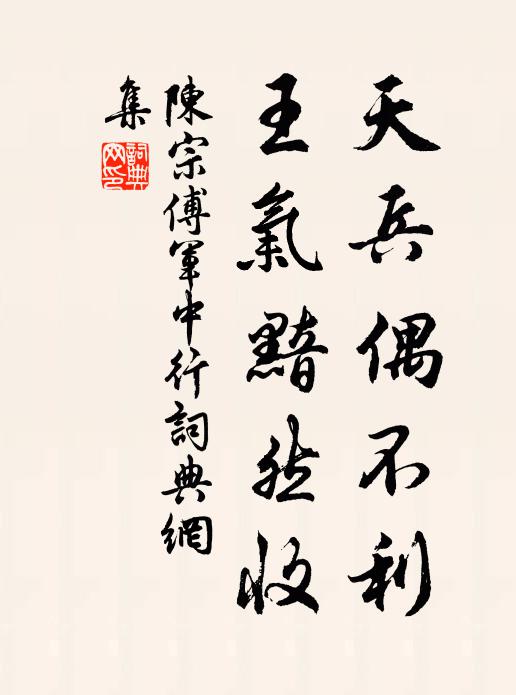 天兵偶不利
王氣黯然收
陳宗傅軍中行詞典網
集
詞典網印